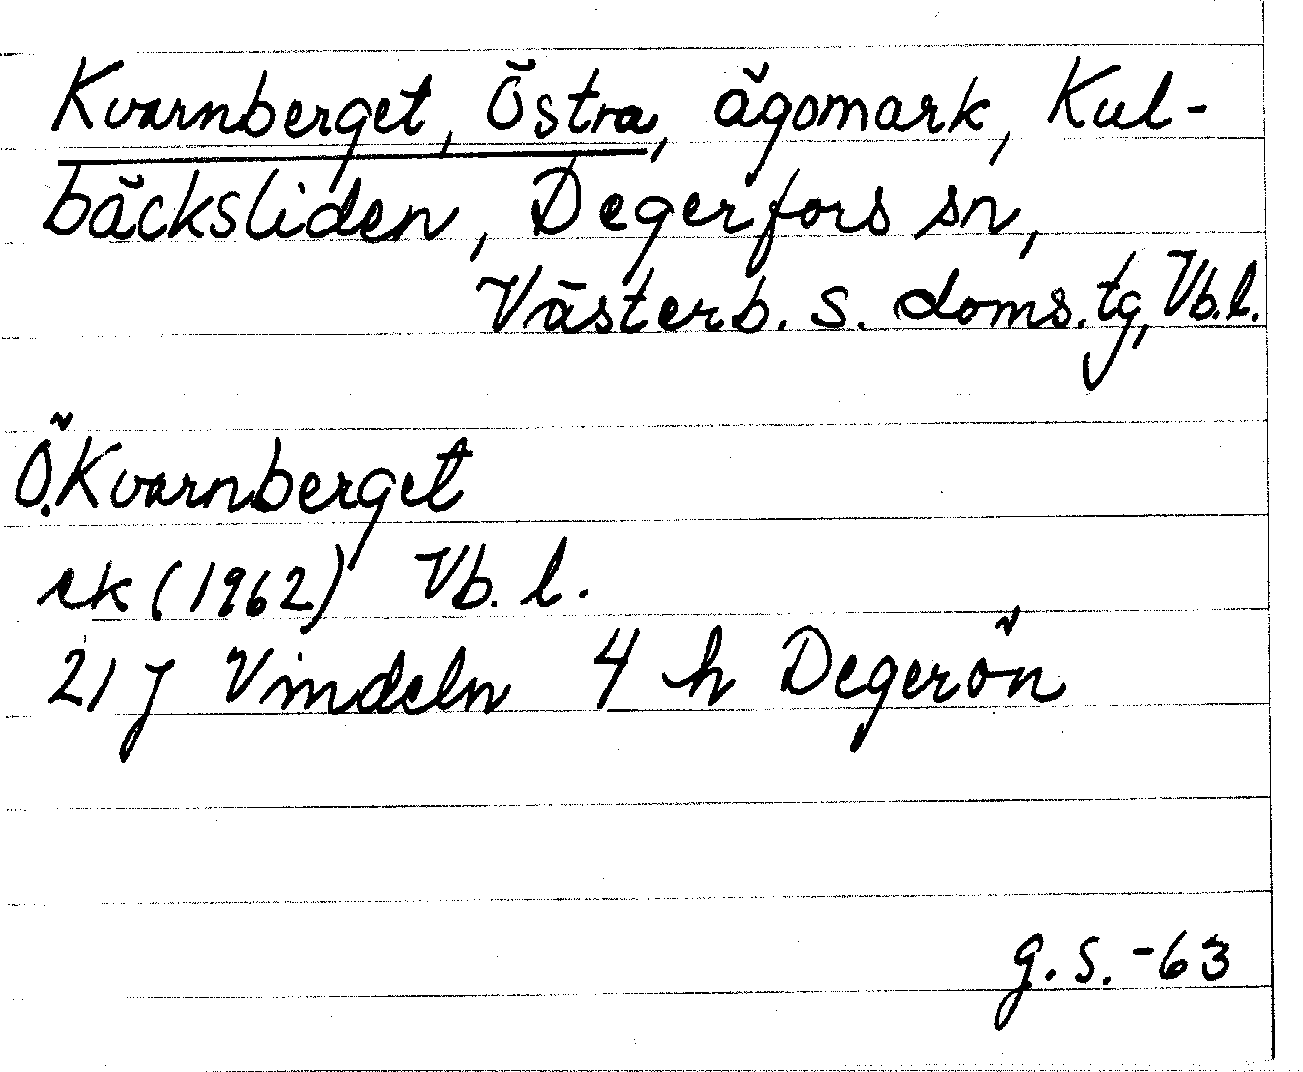 Kvarnberget, Östra, ägomark, Kul-
bäcksliden, Degerfors sn,
Västerb. s. doms. tg, Vb. l.
Ö. Kvarnberget
ek (1962) Vb. l.
21 J Vindeln 4 h Degerön
g. s. -63